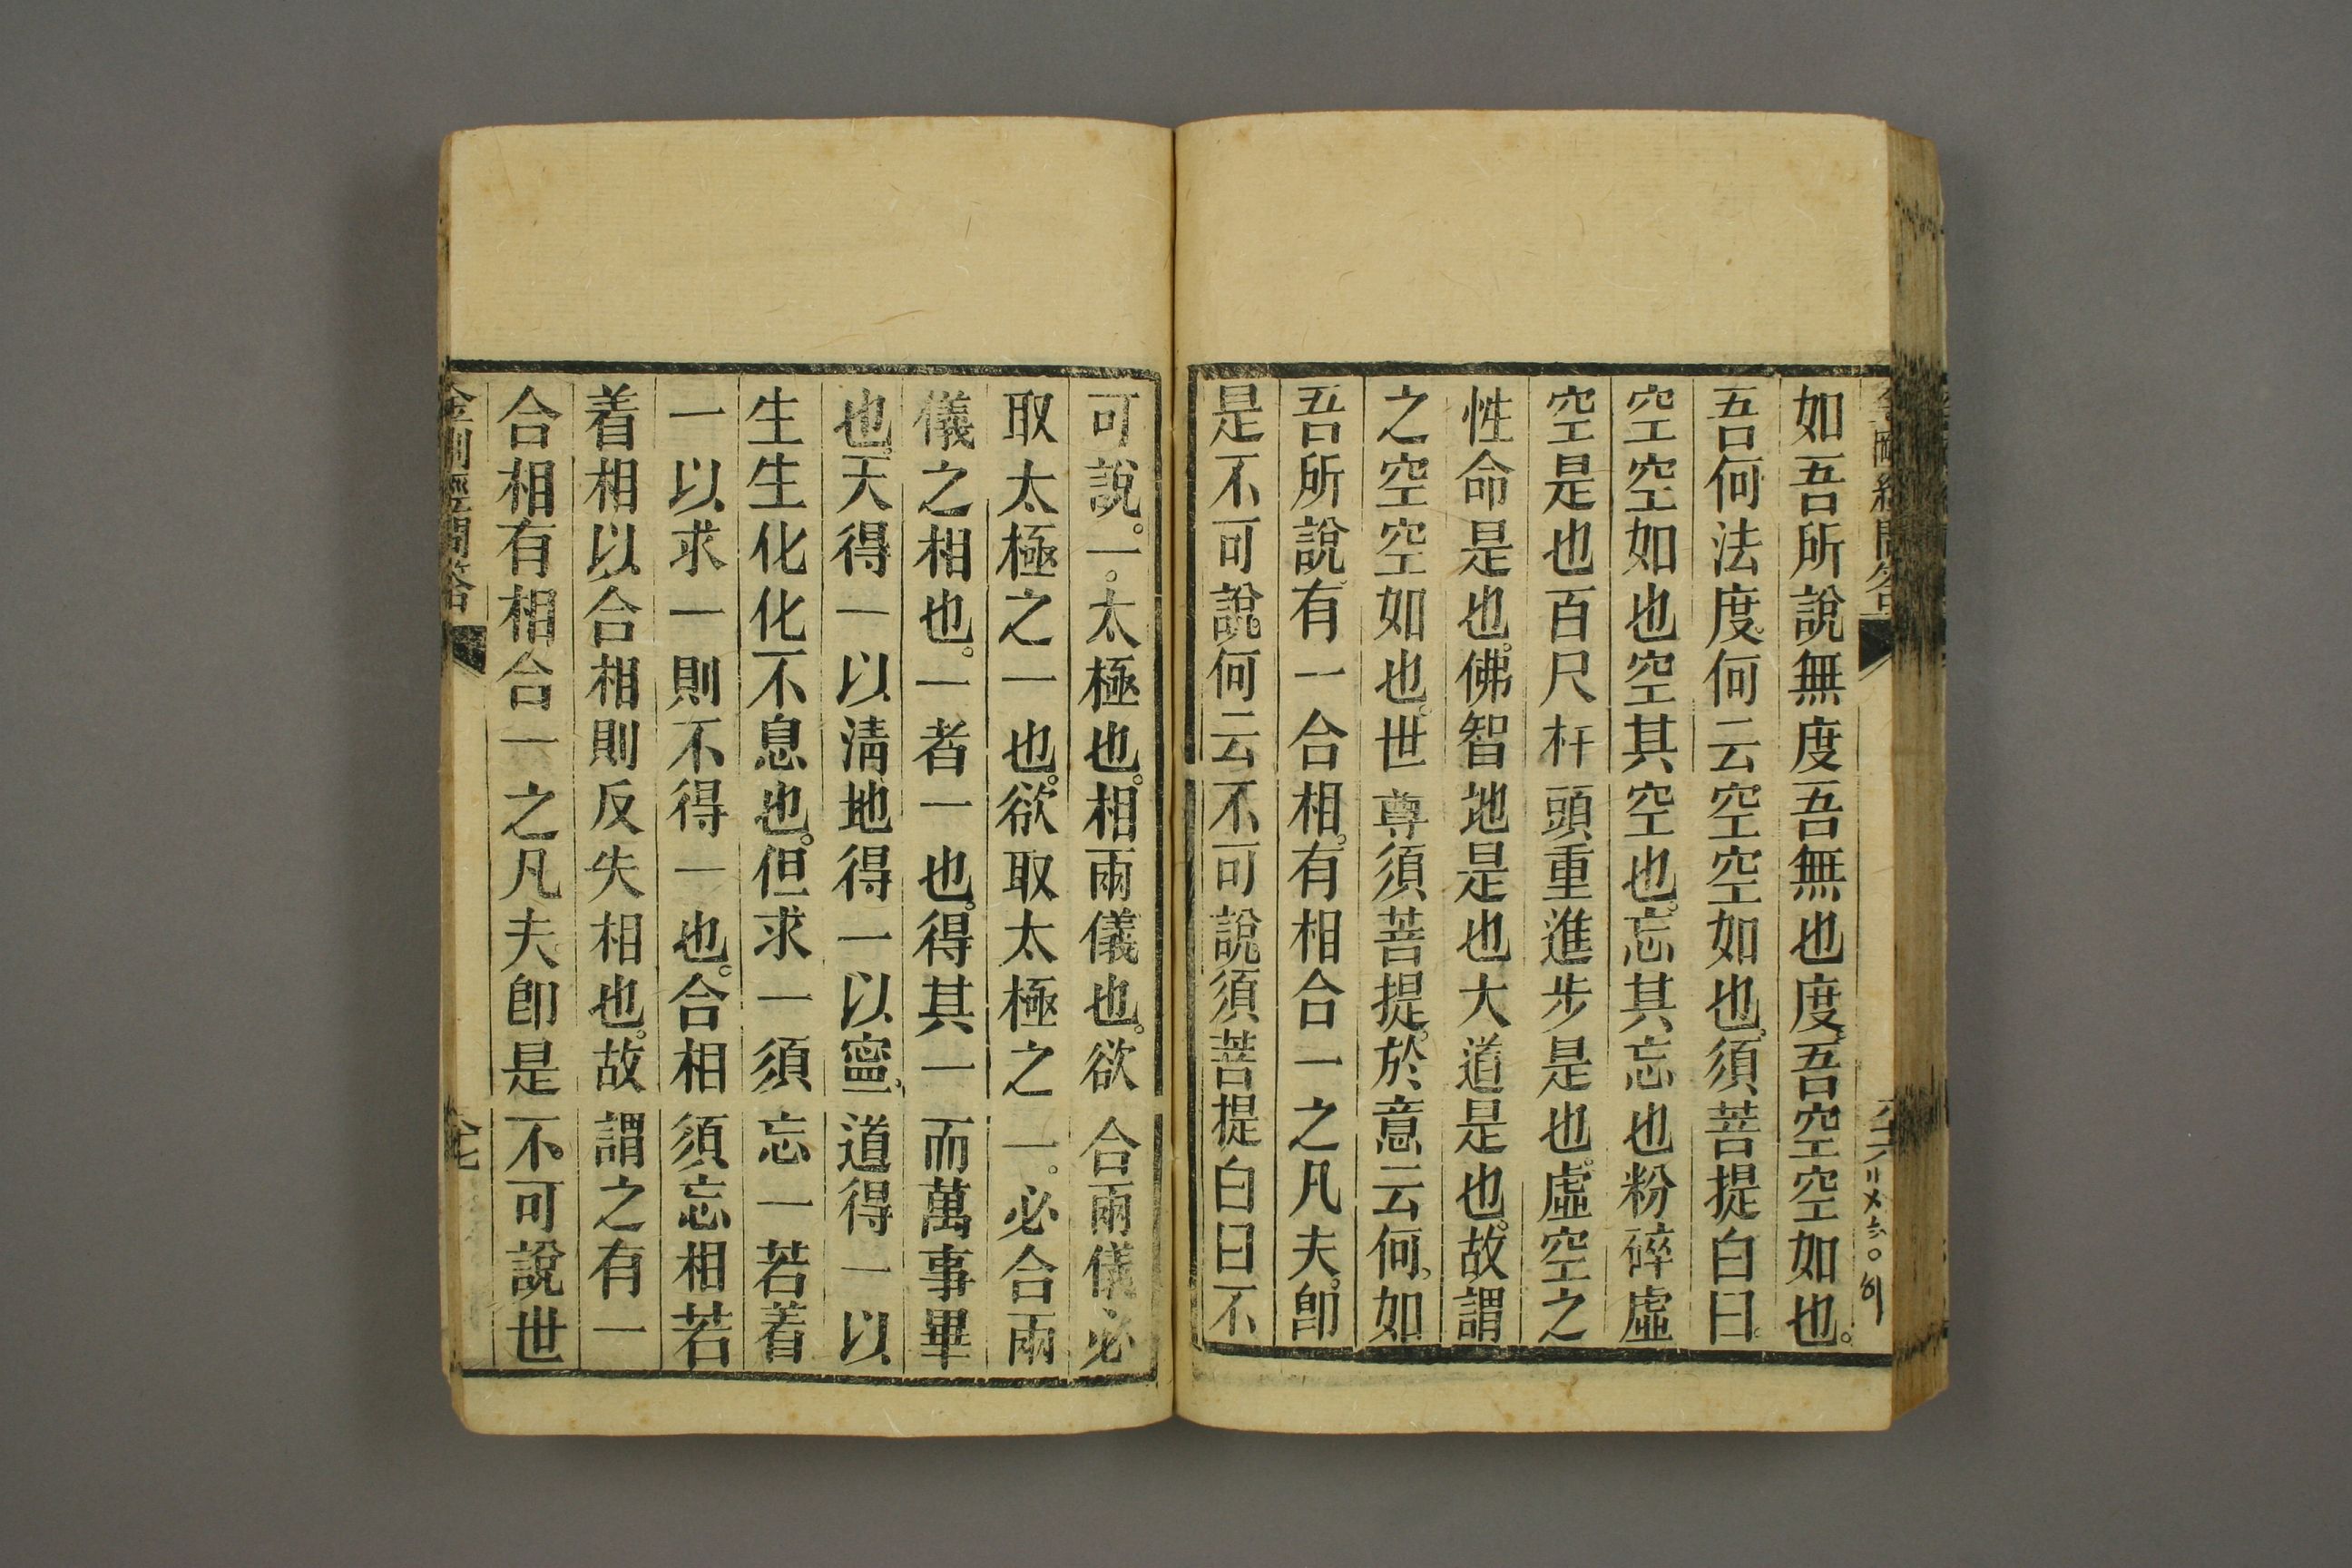 金剛經問答
如吾所說無度吾無也度。吾空空如也。
吾何法度。何云空空如也。須菩提白曰。
空空如也空其空也。忘其忘也粉碎虛
空是也百尺杆頭重進步是也。虛空之
性命是也。佛智地是也大道是也。故謂
之空空如也。世尊須菩提。於意云何。如
吾所說。有一合相。有相合一之凡夫。卽
是不可說何云不可說須菩提白曰不
可說。一。太極也。相兩儀也。欲合兩儀必
取太極之一也。欲取太極之一。必合兩
儀之相也。一者一也。得其一而萬事畢
也。天得一以淸地得一以寍。道得一以
生生化化不息也。但求一須忘一若着
一以求一則不得一也。合相須忘相若
着相以合相則反失相也。故謂之有一
合相有相合一之凡夫。卽是不可說世
金剛經問答